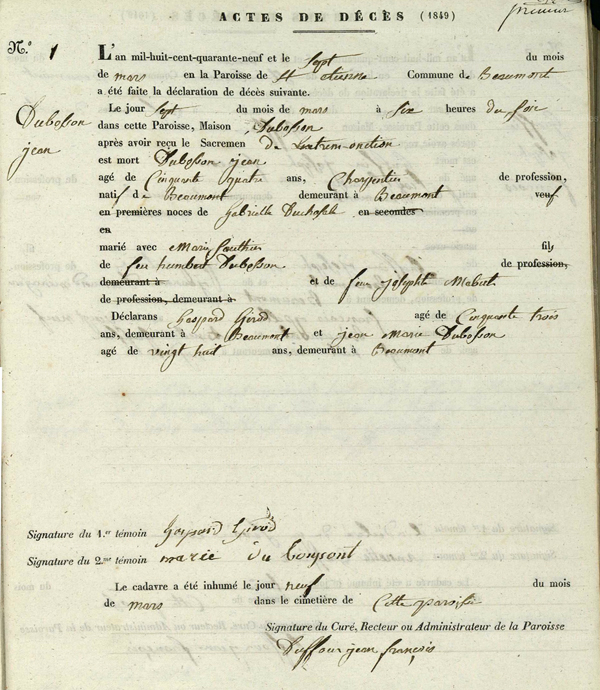 ACTES DE DÉCÈS (1849)
premier
N.o 1 L'an mil-huit-cent-quarante-neuf et le Sept du mois
de mars en la Paroisse de St etienne Commune de Beaumont
a été faite la déclaration de décès suivante.
Dubosson jean
Le jour Sept du mois de mars à Six heures du Soir
dans cette Paroisse, Maison Dubosson
après avoir reçu le Sacremen de Lextrem-onction
est mort Dubosson jean
agé de Cinquante quatre ans, Charpentier de profession,
natif de Beaumont demeurant à Beaumont veuf
en premières noces de Gabrielle en secondes
en
marié avec Marie Gauthier fils
de feu humbert Dubosson de profession,
demeurant à et de feue josephte
de profession, demeurant à
Déclarans Gaspard Girod agé de Cinquante trois
ans, demeurant à Beaumont et jean Marie Dubosson
agé de vingt huit ans, demeurant à Beaumont
Signature du 1.er témoin Gaspard Girod
Signature du 2.me témoin marie du
Le cadavre a été inhumé le jour neuf du mois
de mars dans le cimetière de Cette paroisse
Signature du Curé, Recteur ou Administrateur de la Paroisse
Duffour jean françois